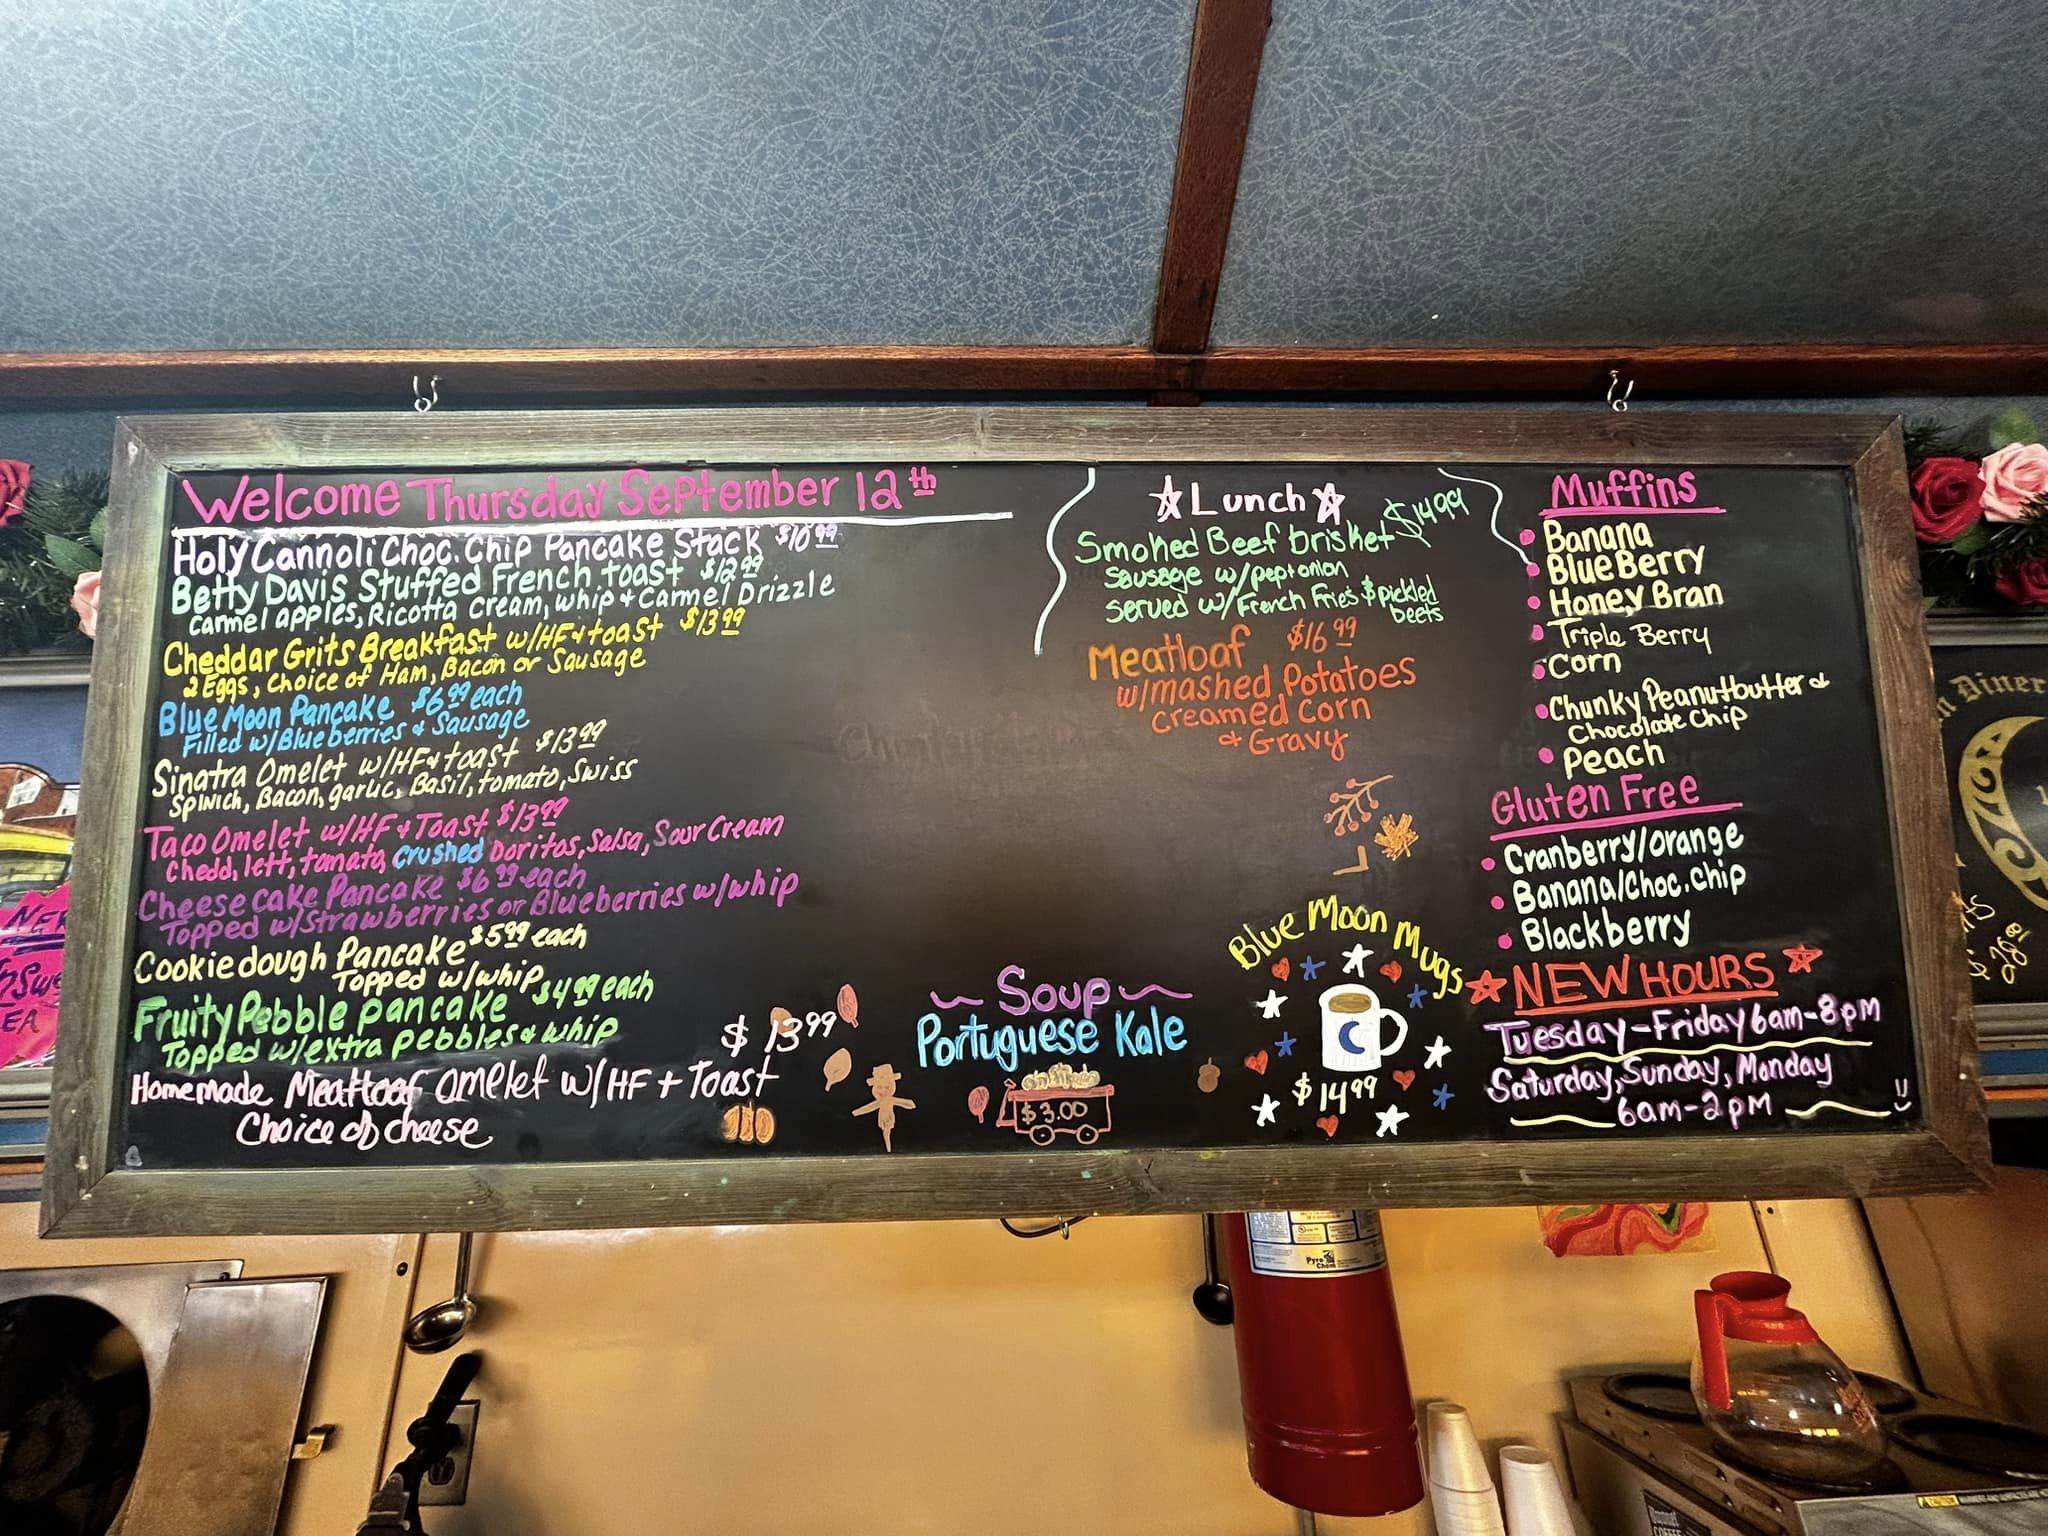 Welcome Thursday September 12th
Holy Cannoli Choc. Chip Pancake Stack $10.99
Betty Davis Stuffed French toast $12.99
Carmel apples, Ricotta cream, whip & Carmel Drizzle
Cheddar Grits Breakfast w/HF & toast $13.99
2 Eggs, choice of Ham, Bacon or Sausage
Blue Moon Pancake $6.99 each
Filled w/Blueberries & Sausage
Sinatra Omelet w/HF & toast $13.99
Spinich, Bacon, garlic, Basil, tomato, Swiss
Taco Omelet w/HF & Toast $13.99
Chedd, lett, tomato, crushed Doritos, Salsa, Sour Cream
Cheesecake Pancake $6.99 each
Topped w/strawberries or Blueberries w/whip
Cookiedough Pancake $5.99 each
Topped w/whip
Fruity Pebble pancake $4.99 each
Topped w/extra Pebbles & whip
$13.99
Homemade Meatloaf Omelet w/HF + Toast
Choice of cheese
Lunch
Smoked Beef brisket $14.99
Sausage w/pept onion
served w/French Fries & pickled
beets
Meatloaf $16.99
w/mashed Potatoes
creamed corn
& Gravy
Soup
Portuguese Kale
$3.00
Blue Moon Mugs
$14.99
Muffins
Banana
BlueBerry
Honey Bran
Triple Berry
Corn
Chunky Peanutbutter &
Chocolate Chip
Peach
Gluten Free
Cranberry/orange
Banana/choc. chip
Blackberry
NEW HOURS
Tuesday-Friday 6am-8pm
Saturday, Sunday, Monday
6am-2pm
Diner
NEW
EA
Pyro
Chem
CAUTION
COFFEE